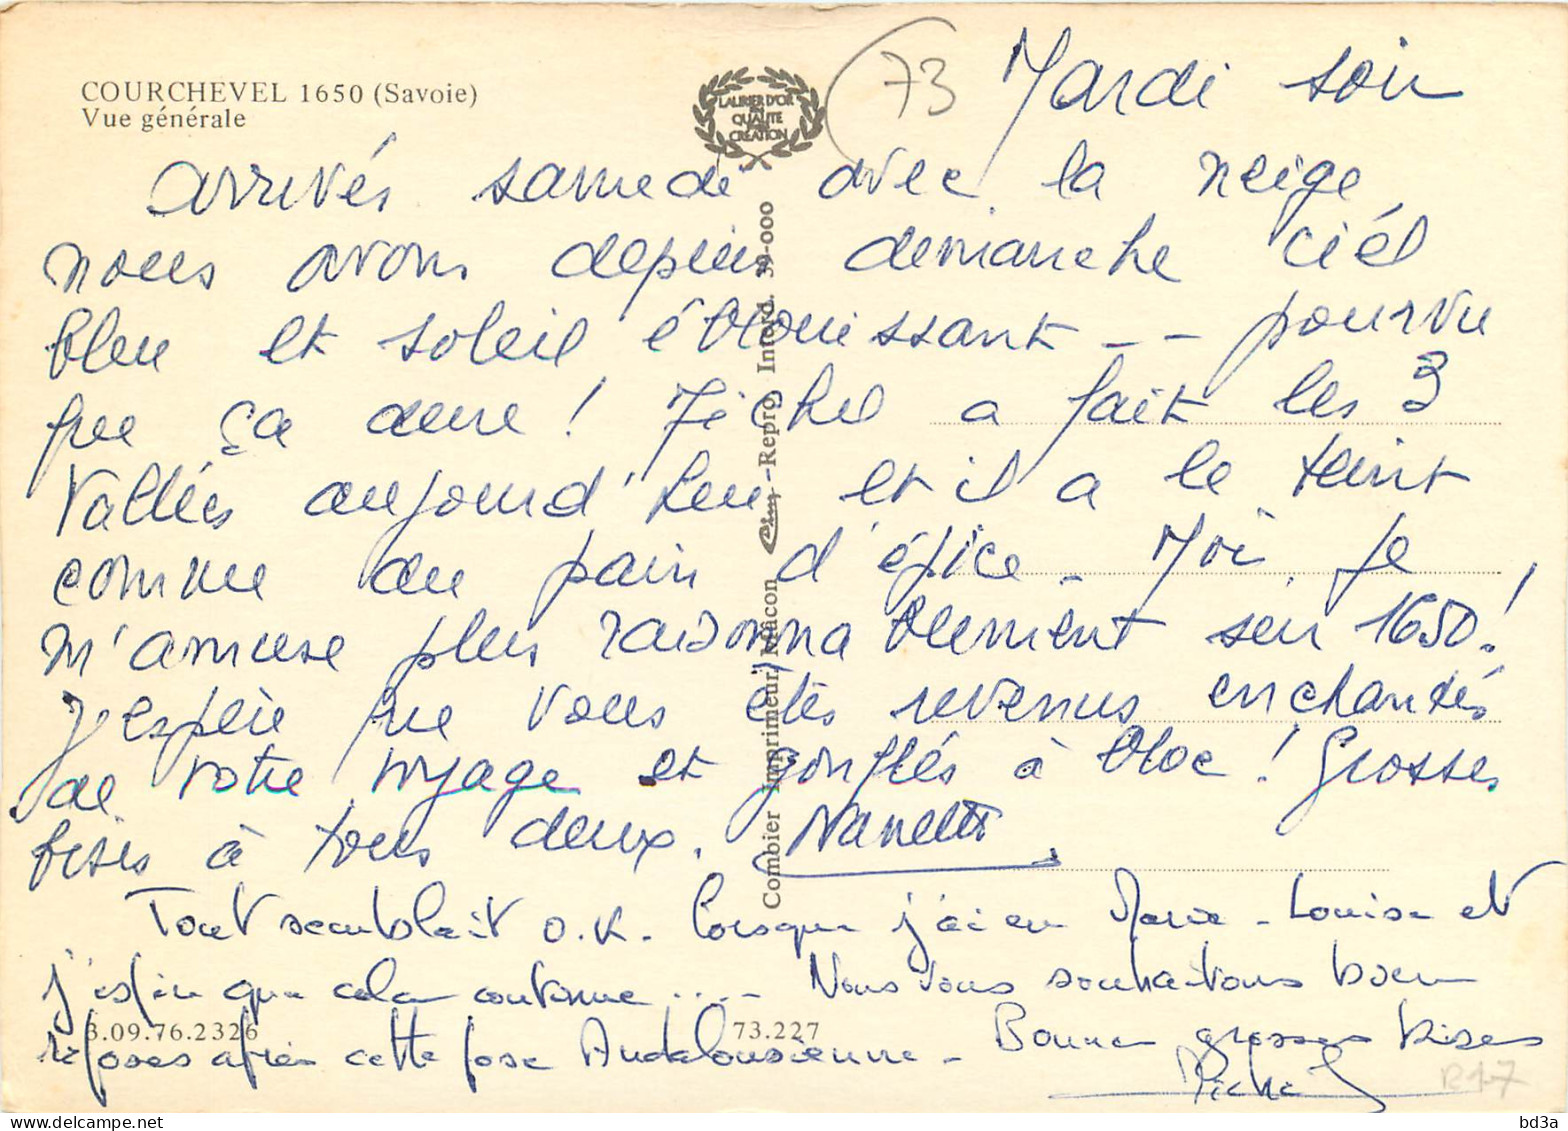 COURCHEVEL 1650 (Savoie)
Vue générale
LAURIER D'OR
DE
QUALITE
CREATION
73
Mardi soir
arrivés samedi avec la neige
nous avons depuis dimanche ciél
bleu et soleil éblouissant -- pourvu
que ça dure ! Michel a fait les 3
Vallées aujourd'hui et il a le teint
comme du pain d'épice - Moi, je
m'amuse plus raisonnablement sur 1650 !
J'espère que vous êtes revenus enchantés
de votre voyage et gonflés à bloc ! Grosses
bises à tous deux. Nanette
Tout semblait O.K. lorsque j'ai eu Marie-Louise et
j'espère que cela continue .... - Nous vous souhaitons bien
reposés après cette pose Andalousienne - Bonnes grosses bises
Michel
3.09.76.2326
73.227
Combier Imprimeur Mâcon Cim Repro. Interd. 39-000
R17
bd3a